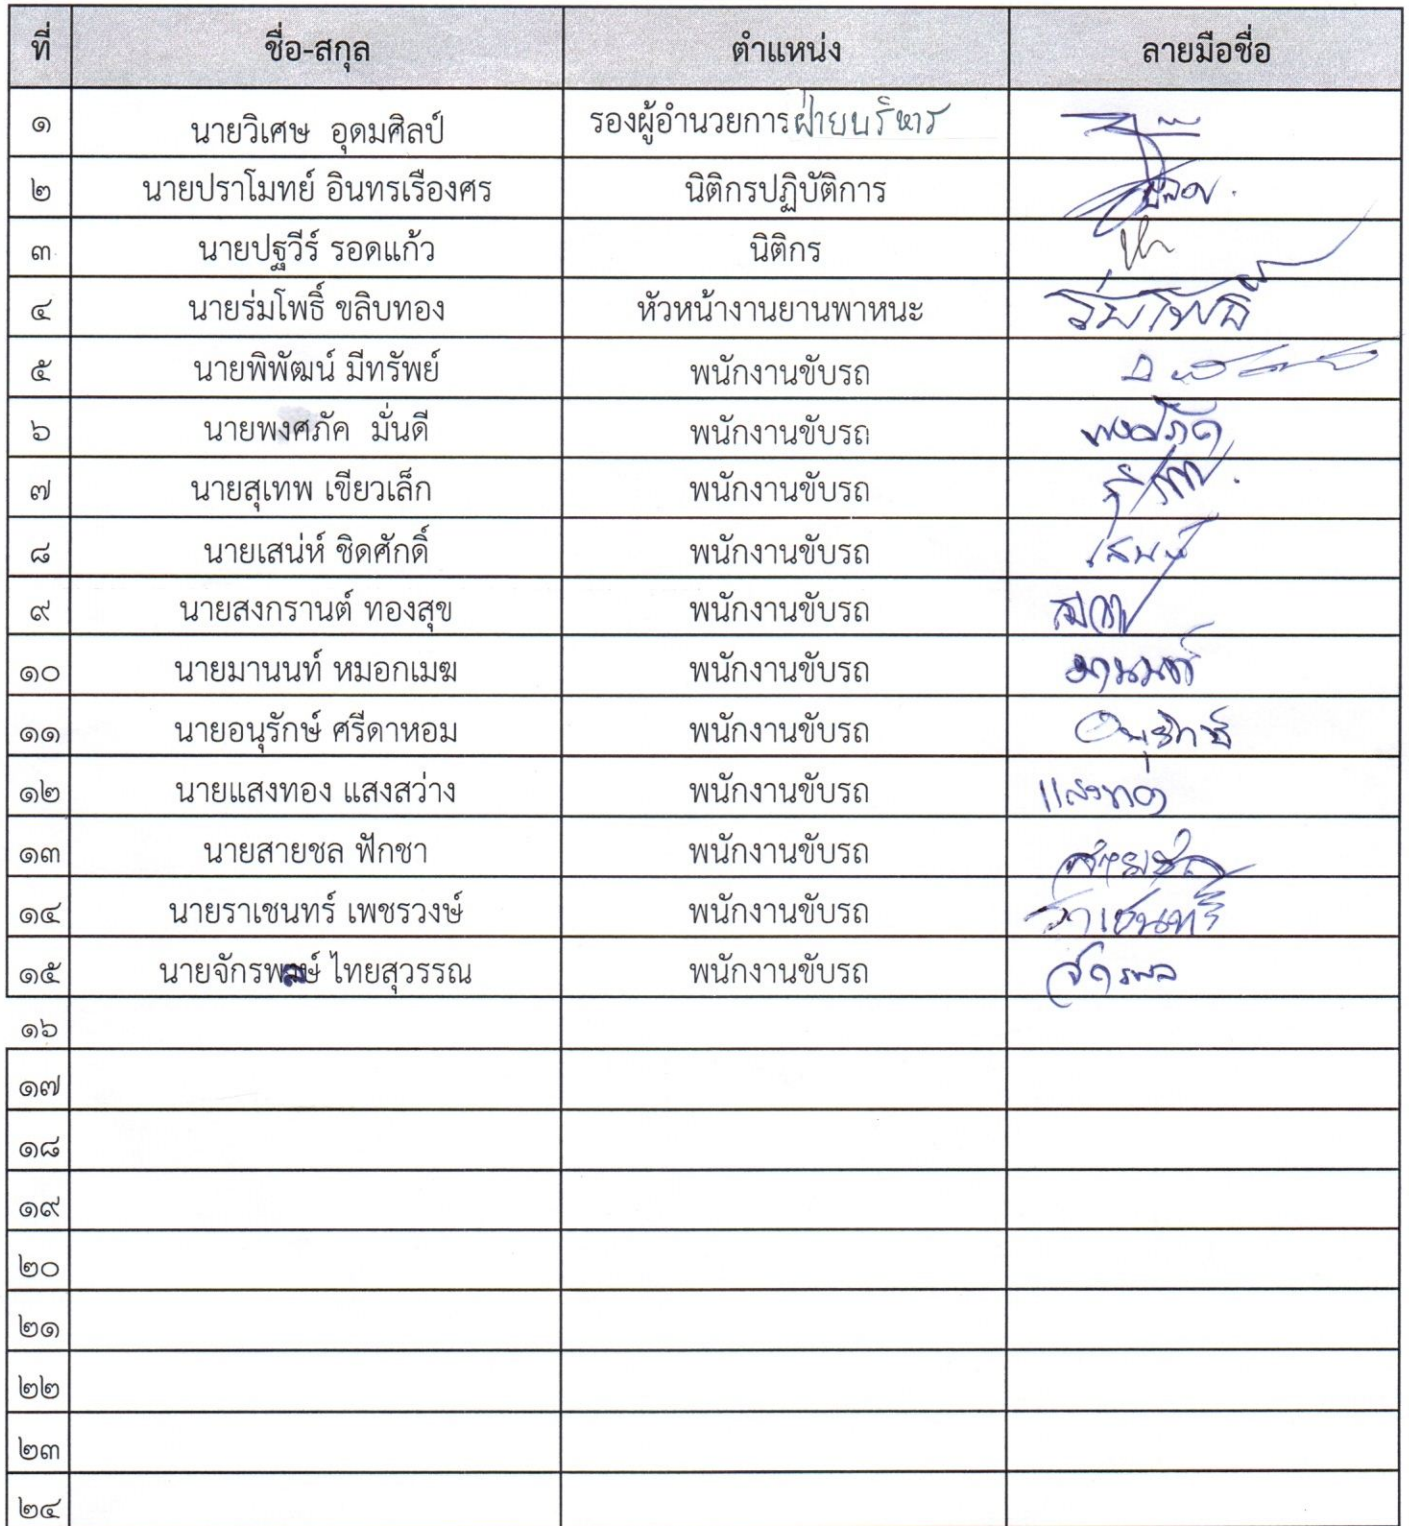 ที่ ชื่อ-สกุล ตำแหน่ง ลายมือชื่อ
๑ นายวิเศษ อุดมศิลป์ รองผู้อำนวยการฝ่ายบริหาร
๒ นายปราโมทย์ อินทรเรืองศร นิติกรปฏิบัติการ
๓ นายปฐวีร์ รอดแก้ว นิติกร
๔ นายร่มโพธิ์ ขลิบทอง หัวหน้างานยานพาหนะ ร่มโพธิ์
๕ นายพิพัฒน์ มีทรัพย์ พนักงานขับรถ
๖ นายพงศภัค มั่นดี พนักงานขับรถ พงศภัค
๗ นายสุเทพ เขียวเล็ก พนักงานขับรถ
๘ นายเสน่ห์ ชิดศักดิ์ พนักงานขับรถ เสน่ห์
๙ นายสงกรานต์ ทองสุข พนักงานขับรถ
๑๐ นายมานนท์ หมอกเมฆ พนักงานขับรถ มานนท์
๑๑ นายอนุรักษ์ ศรีดาหอม พนักงานขับรถ อนุรักษ์
๑๒ นายแสงทอง แสงสว่าง พนักงานขับรถ แสงทอง
๑๓ นายสายชล ฟักชา พนักงานขับรถ สายชล
๑๔ นายราเชนทร์ เพชรวงษ์ พนักงานขับรถ ราเชนทร์
๑๕ ไทยสุวรรณ พนักงานขับรถ จักรพล
๑๖
๑๗
๑๘
๑๙
๒๐
๒๑
๒๒
๒๓
๒๔